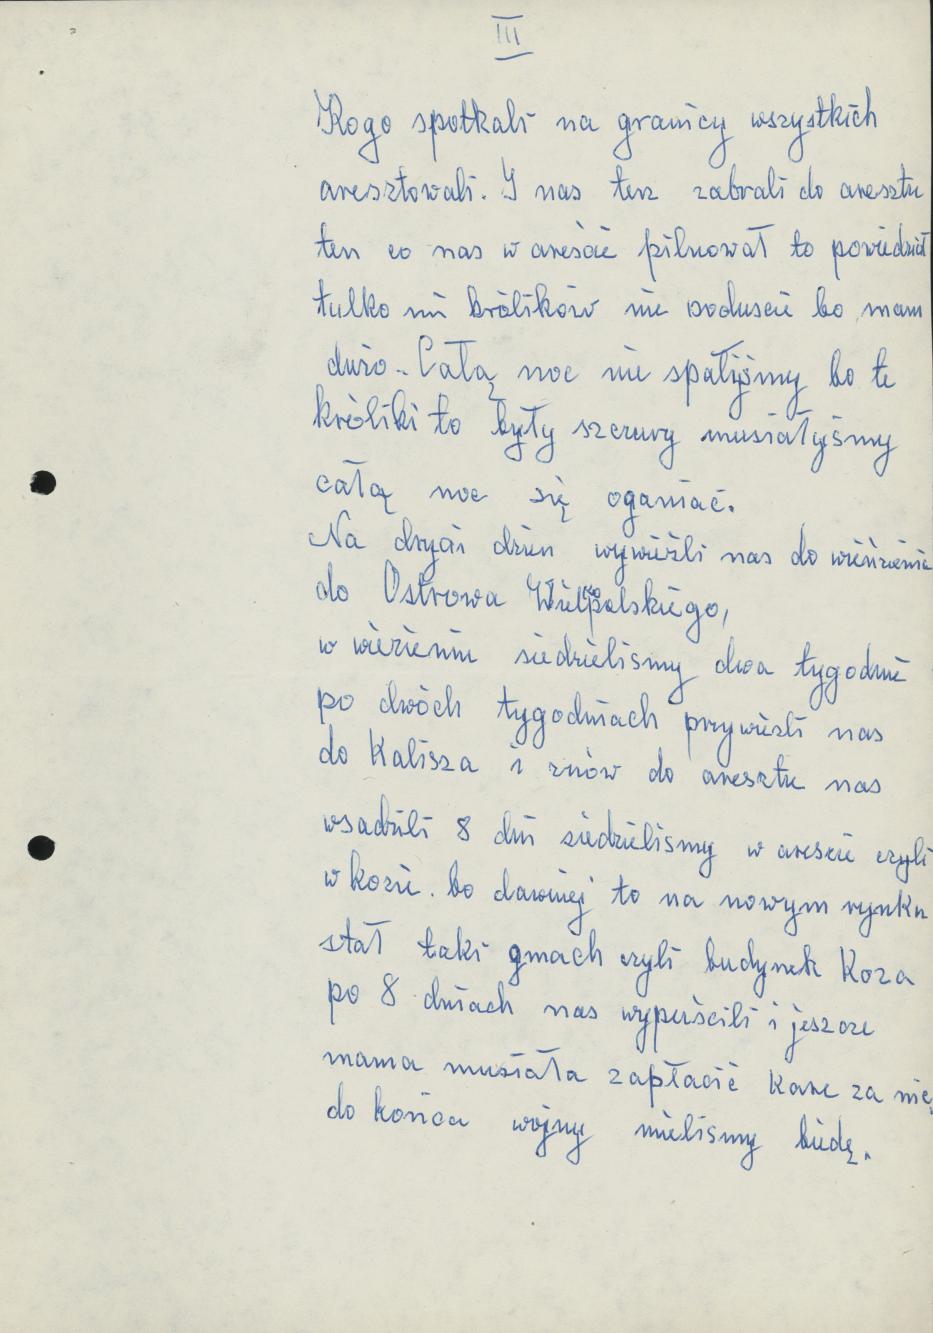 III
Kogo spotkali na granicy wszystkich
aresztowali. I nas tez zabrali do aresztu
ten co nas w areśćie pilnował to powiedział
tulko mi królików nie podusecie bo mam
dużo.. Całą noc nie spałyśmy bo te
króliki to były szczury musiałyśmy
całą noc się oganiać.
Na drygi dzien wywieźli nas do wieńzienia
do Ostrowa Wielkopolskiego,
w wiezieniu siedzielismy dwa tygodnie
po dwóch tygodniach przywiezli nas
do Kalisza i znów do aresztu nas
wsadzili 8 dni siedzielismy w aresecie czyli
w kozie. bo dawniej to na nowym rynku
stał taki gmach czyli budynek Koza
po 8 dniach nas wypuścili i jeszcze
mama musiała zapłacić Kare za nie,
do końca wojny mielismy biedę.